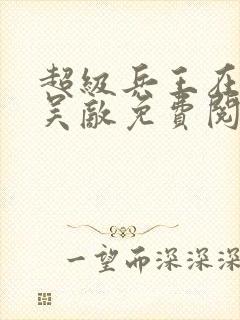 超级兵王在
吴敵免費閱
一望而深深深